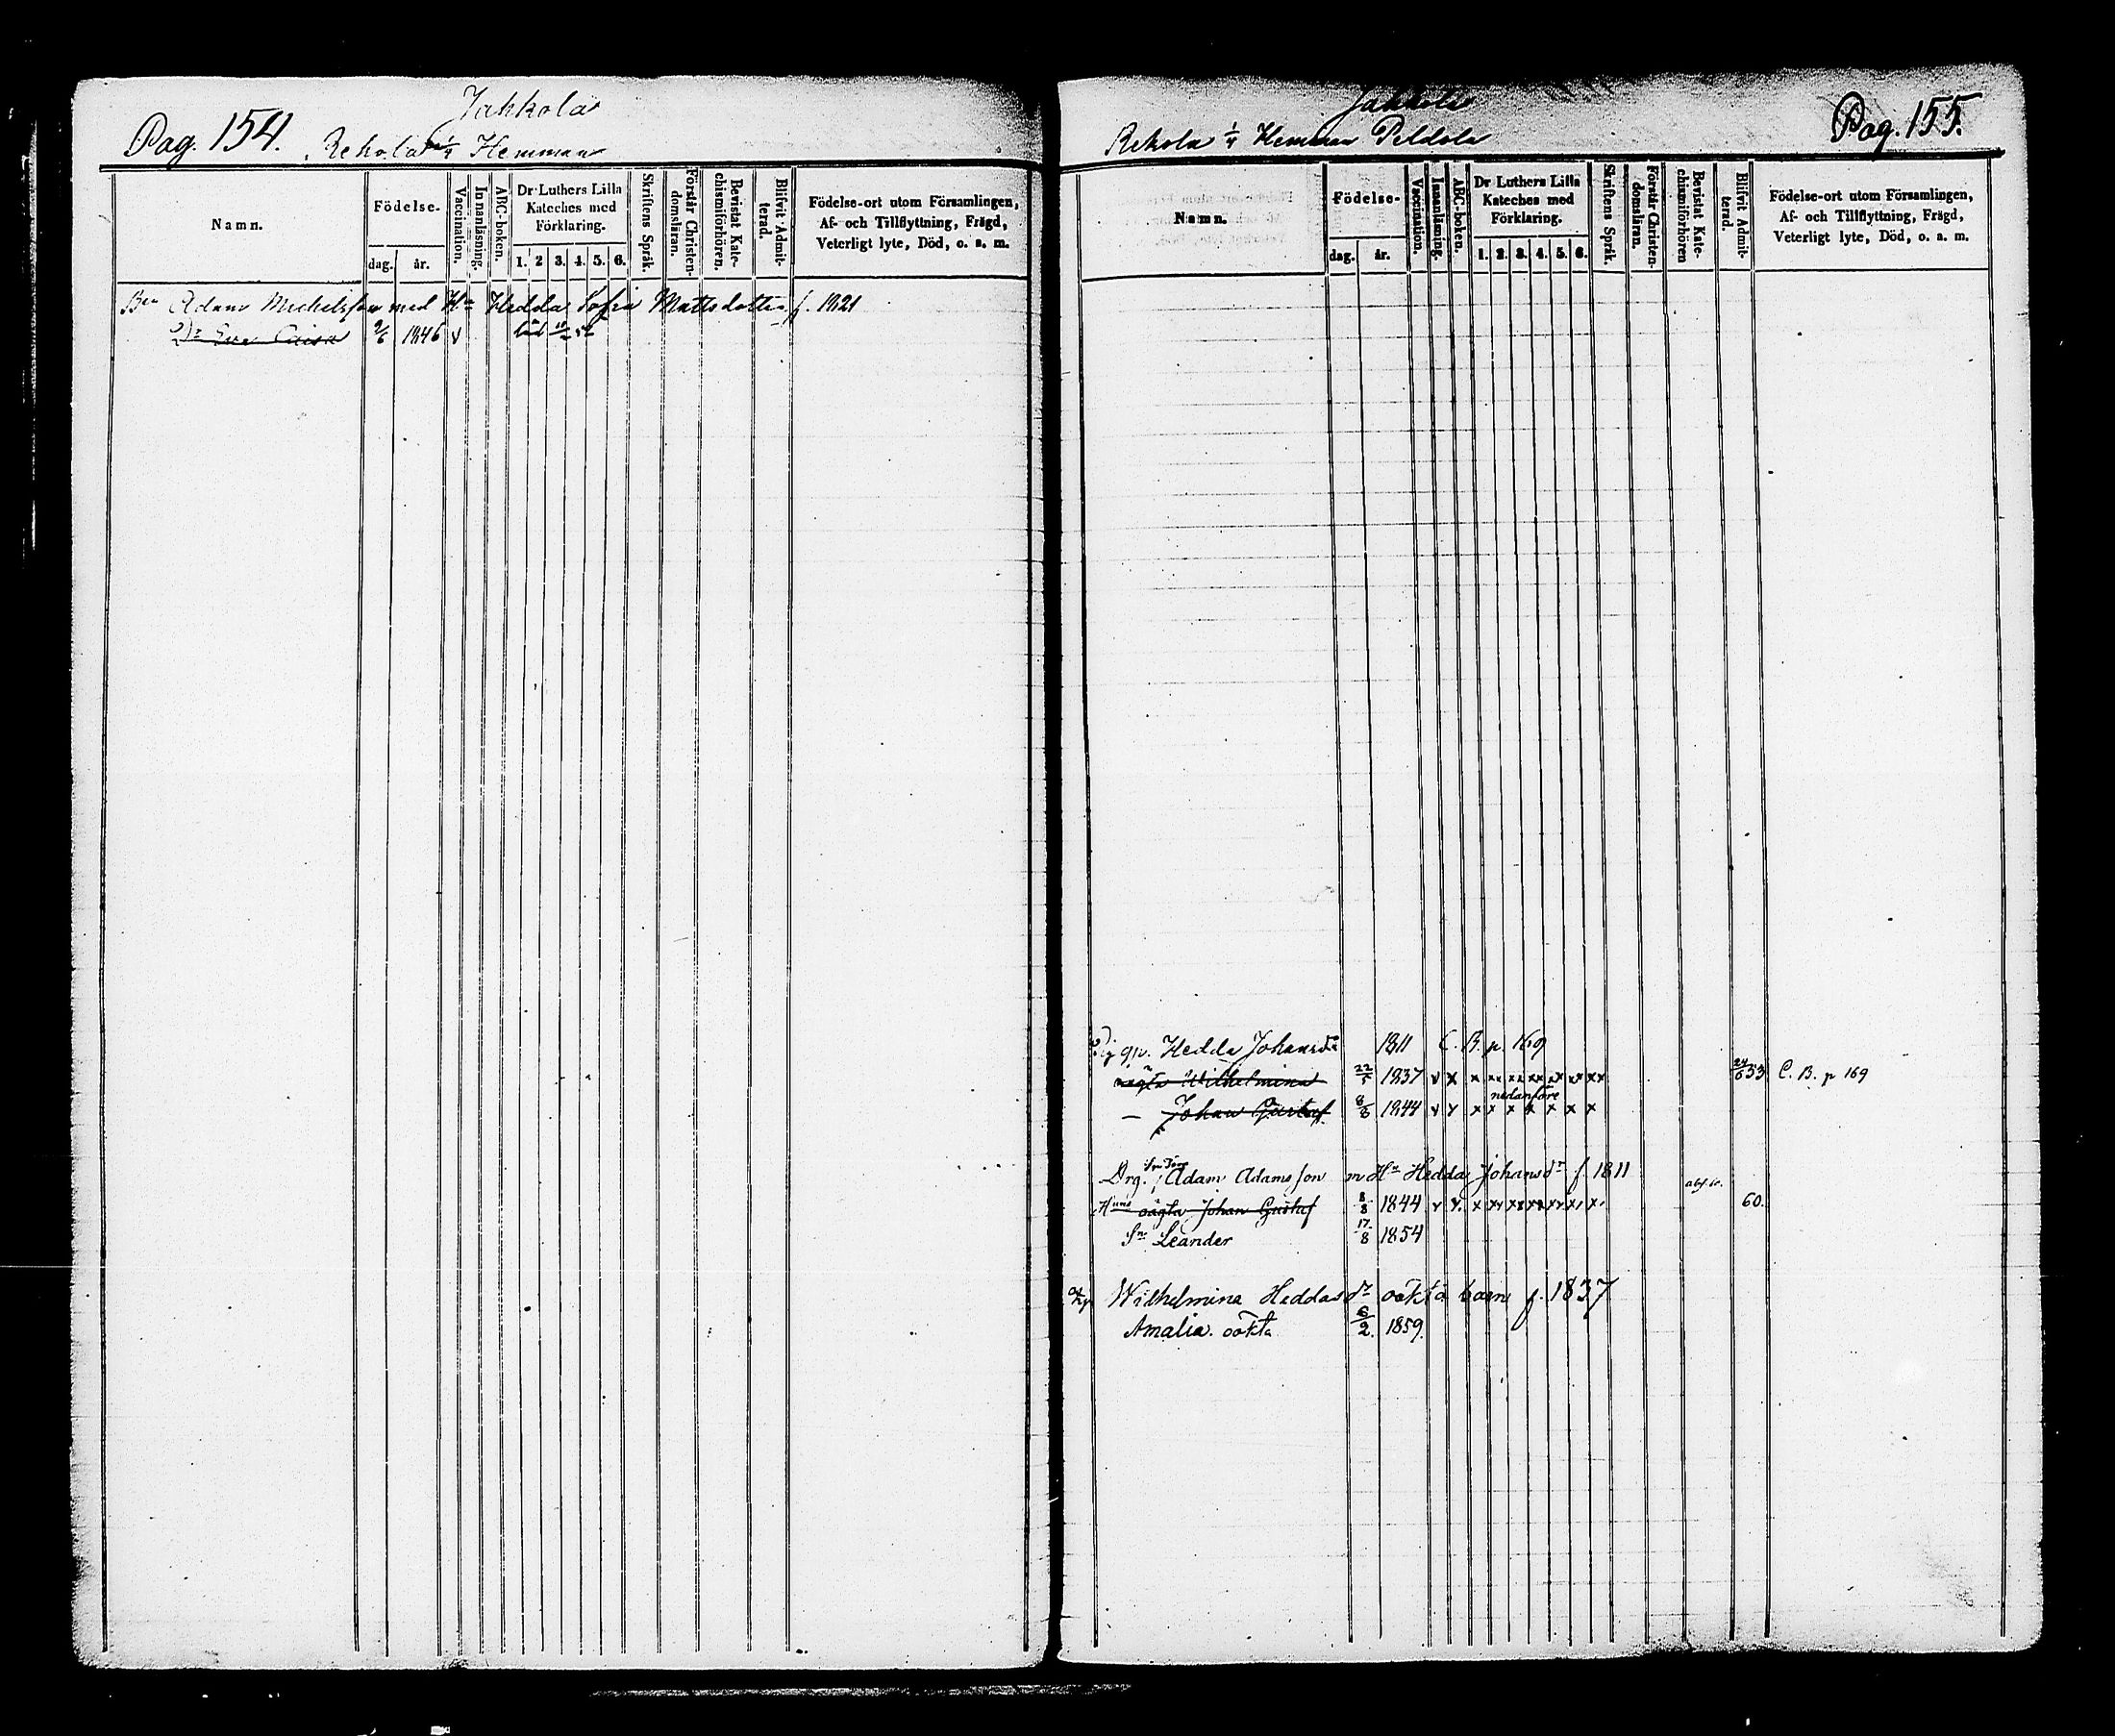 Pag. 154.
Jahkola
Rekola 1/4 Hemman
Namn.
Födelse-
dag. år.
Vaccination.
Innanläsning.
ABC-boken.
Dr Luthers Lilla Kateches med Förklaring.
1. 2 3. 4. 5. 6.
Skriftens Språk.
Förstår Christendomsläran.
Bevistat Katechismiförhören.
Blifvit Admitterad.
Födelse-ort utom Församlingen,
Af- och Tillflyttning, Frägd,
Veterligt lyte, Död, o. s. m.
Adam Michelsson med Hu Hedda Sofia Mattsdotter f. 1821
Dr Eva Caisa 9/6 1846 v död
Jahkola
Rekola 1/4 Hemman Peldola
Pag. 155.
Namn.
Födelse-
dag. år.
Vaccination.
Innanläsning.
ABC-boken.
Dr Luthers Lilla Kateches med Förklaring.
1. 2. 3. 4. 5. 6.
Skriftens Språk.
Förstår Christendomsläran.
Bevistat Katechismiförhören
Blifvit Admitterad.
Födelse-ort utom Församlingen,
Af- och Tillflyttning, Frägd,
Veterligt lyte, Död, o. a. m.
Hedda Johansdr 1811 C. B. p. 169
oägta Wilhelmina 22/5 1837 v x x xx xx xx xx xx xx 24/6 53 C. B. p 169
nedanföre
— Johan Gustaf 8/8 1844 v v x x x x x x x
Drg. Adam Adamsson m Hu Hedda Johansdr f. 1811
Huns oägta Johan Gustaf 8/8 1844 60.
Sn Leander 17/8 1854
Wilhelmina Heddasdr oäkta barn f. 1837
Amalia. oäkta 6/2. 1859.